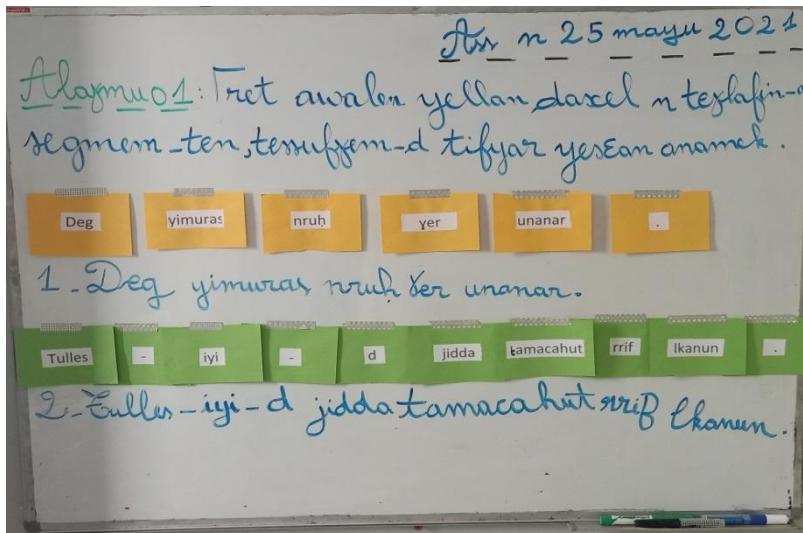 Ass n 25 mayu 2021
Alaɣmu 01: Γret awalen yellan daxel n texlafin-a
segmem-ten, tessufɣem-d tifyar yesɛan anamek.
Deg yimuras nruḥ ɣer unanar .
1 - Deg yimuras nruḥ ɣer unanar.
Tulles - iyi - d jidda tamacahut rrif lkanun .
2 - Tulles-iyi-d jidda tamacahut rrif lkanun.